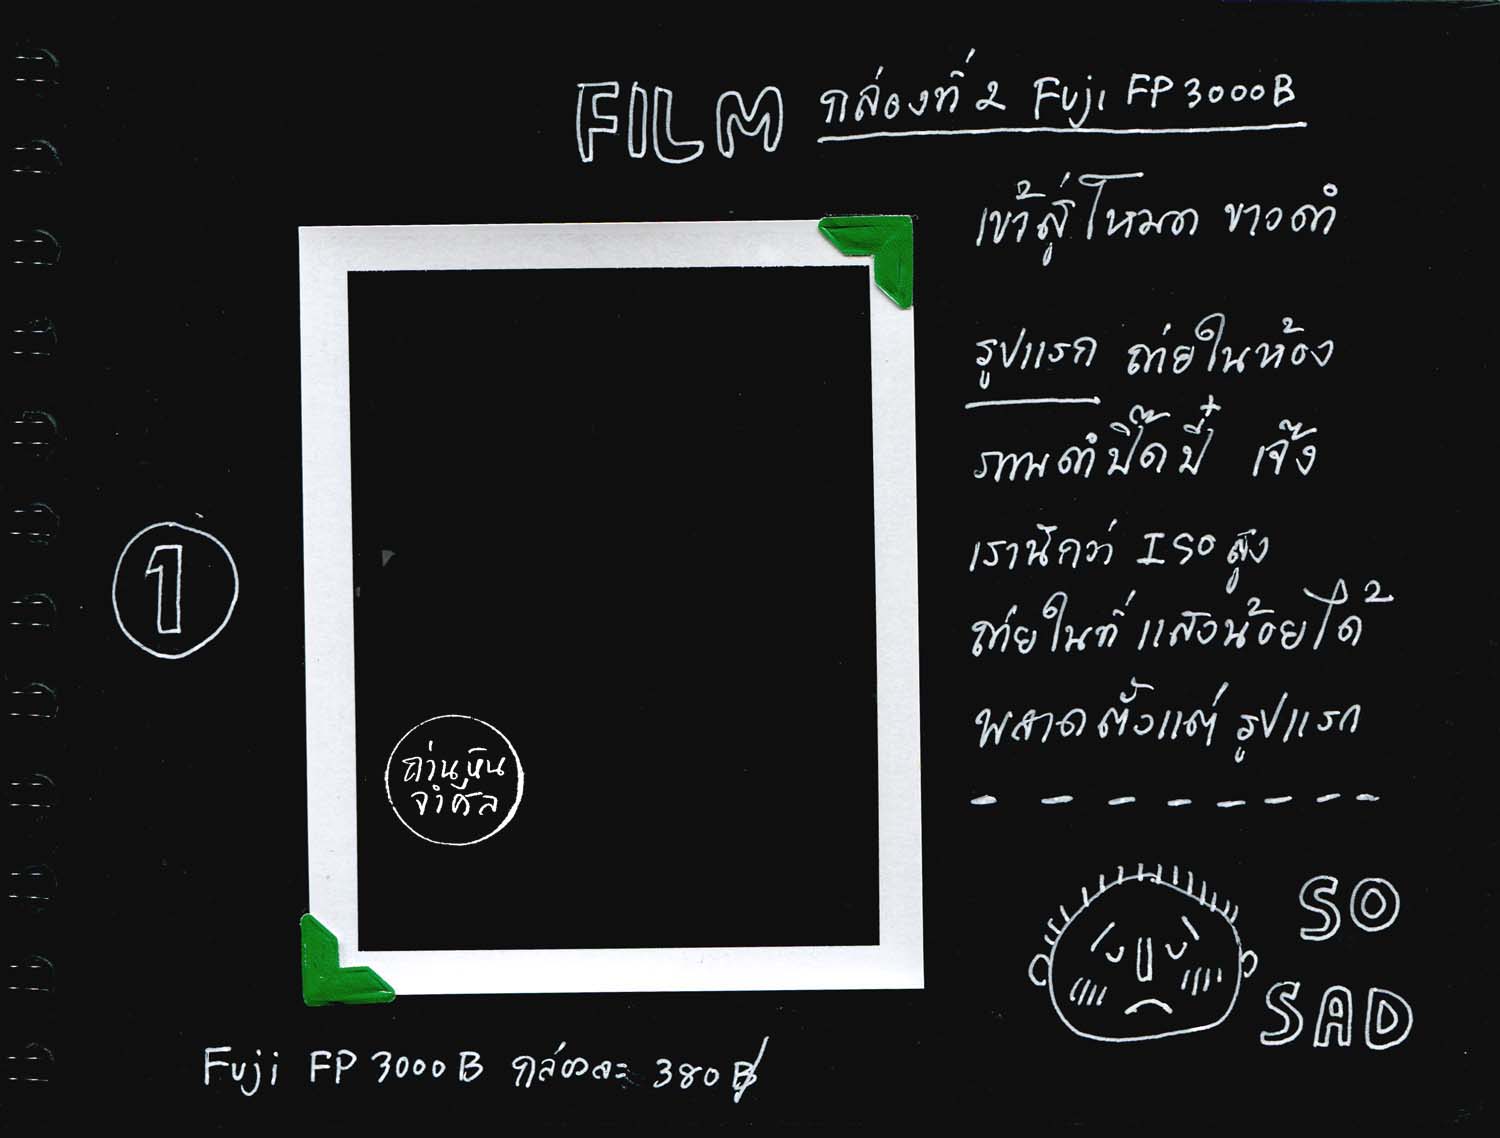 FILM กล่องที่ 2 Fuji FP 3000B
เข้าสู่โหมด ขาวดำ
รูปแรก ถ่ายในห้อง
ภาพดำปิ๊ดปี๋ เจ๊ง
เรานึกว่า ISO สูง
ถ่ายในที่แสงน้อยได้
พลาดตั้งแต่รูปแรก
1
ถ่านหิน
จำศีล
SO
SAD
Fuji FP 3000B กล่องละ 380฿